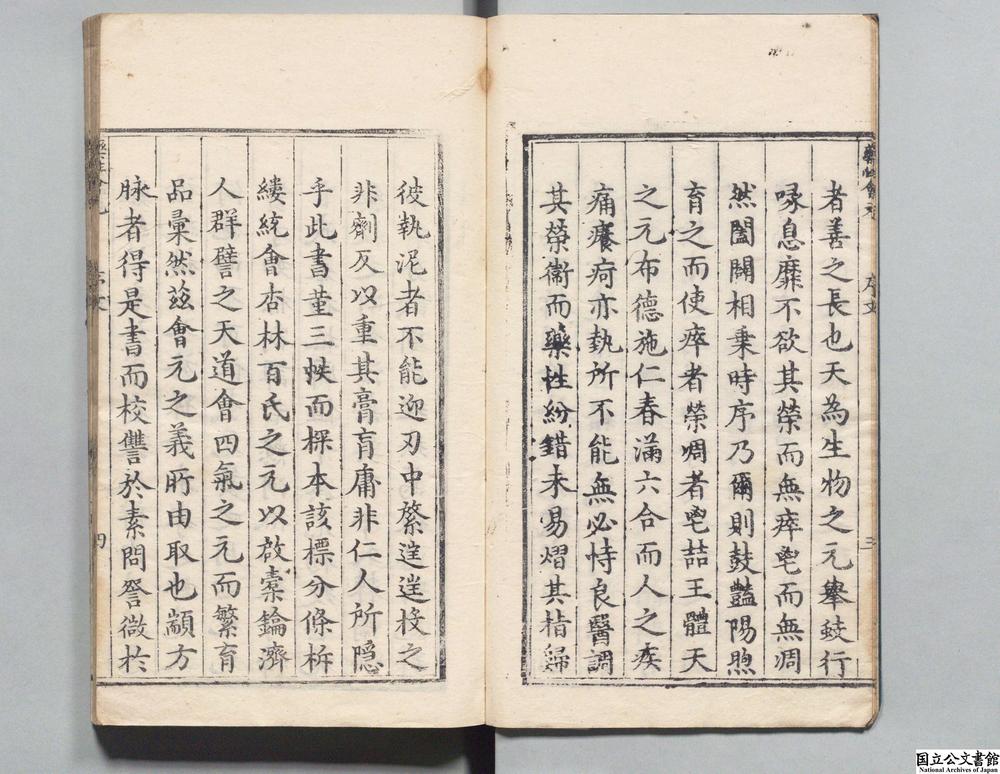 者善之長也天為生物之元舉蚑行
喙息靡不欲其榮而無瘁鬯而無凋
然闔闢相乗時序乃爾則鼓豔陽煦
育之而使瘁者榮凋者鬯喆王體天
之元布德施仁春滿六合而人之疾
痛癢疴亦埶所不能無必恃良醫調
其榮衞而藥性紛錯未易熠其㫖歸
彼執泥者不能迎刃中綮逞逞投之
非劑反以重其膏肓庸非仁人所隠
乎此書菫三帙而探本該標分條析
縷統會杏林百氏之元以啟橐鑰濟
人群譬之天道會四氣之元而繁育
品彙然茲會元之義所由取也顓方
脉者得是書而校讐於素問詧微於
藥性會元
序文
三
四
国立公文書館
National Archives of Japan